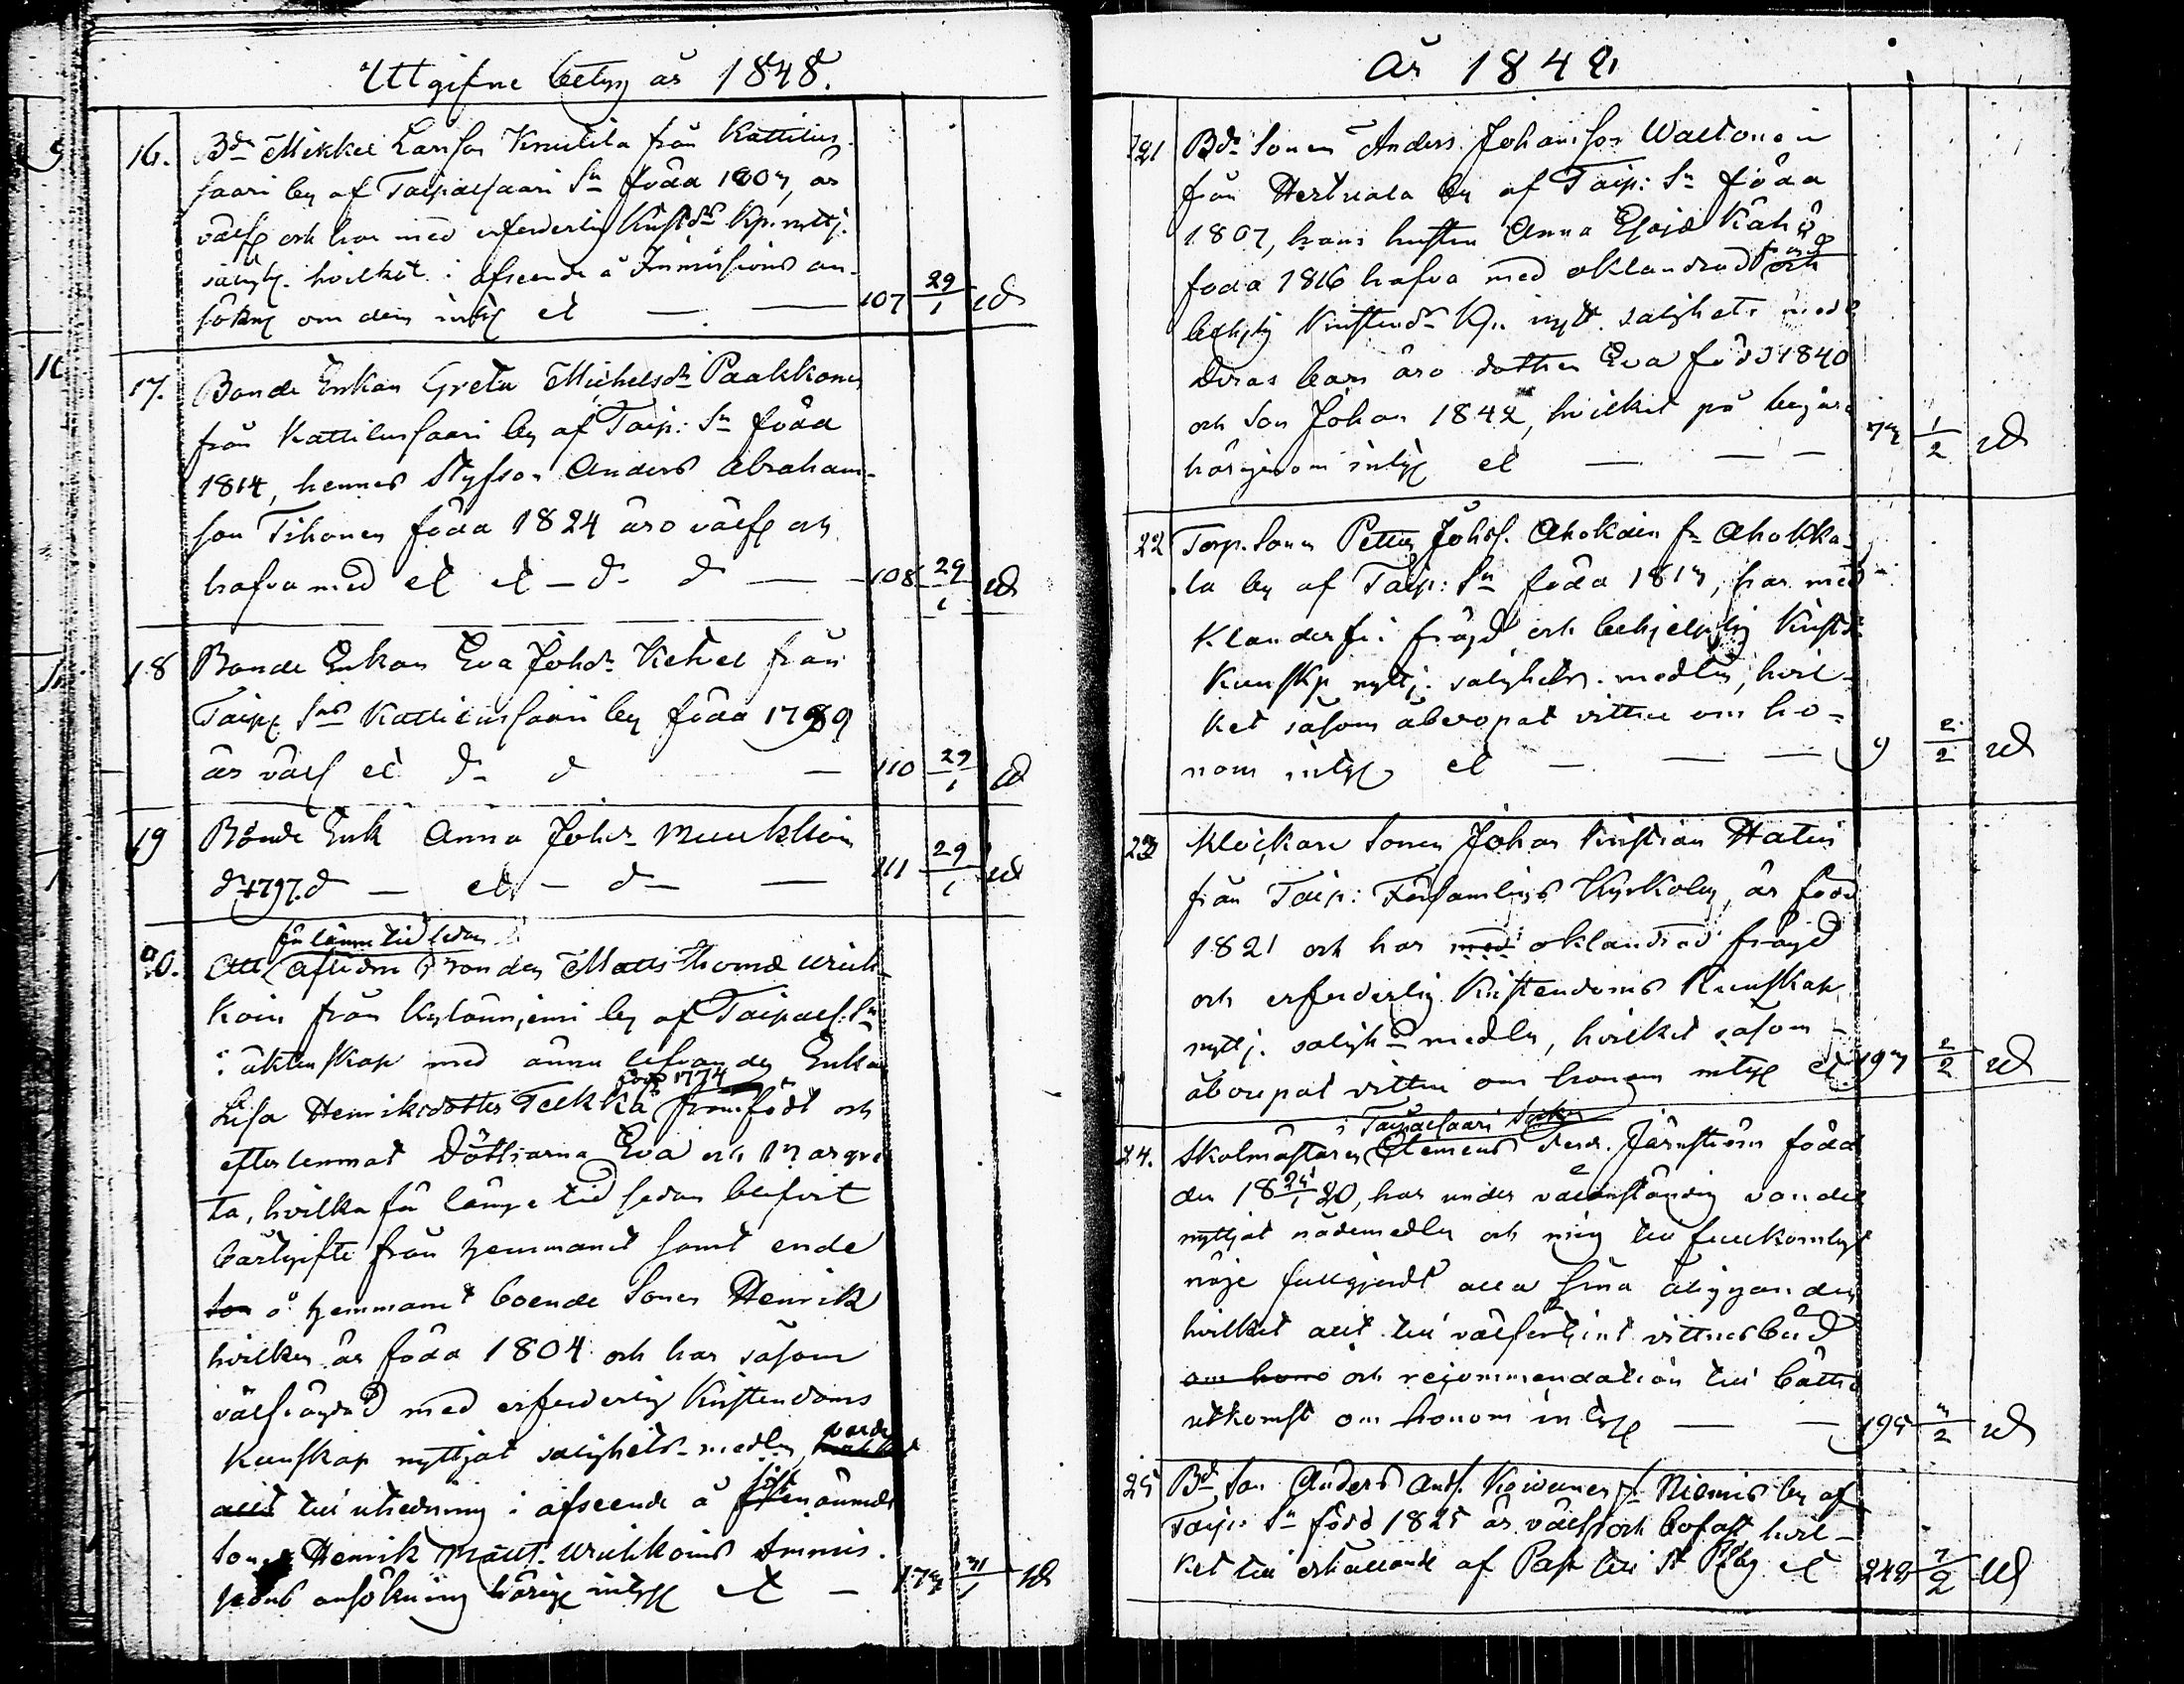 Utgifne betyg år 1848.
16. Bdn Mikkel Larsson Knutila från Kattilus-
saari by af Taipalsaari Sn född 1807, är
välfr och har med erforderlig Kristds Kp. nyttj.
hvilket i afseende å Immissions an-
sökng om dem intyg et — — 107 29/1 ud
17. Bonde Enkan Greta Michelsdr Paakkonen
från Kattilussaari by af Taip: Sn född
1814, hennes Styfson Anders Abraham-
son Tihonen född 1824 äro välfr och
hafva med et et — d — d — 108 29/1 ud
18 Bonde Enkan Eva Johdr Kekel från
Taip Sns Kattilussaari by född 1789
är välf et d — d — 110 29/1 ud
19 Bonde Enk Anna Johdr Muukkoin
d 1797. d — et — d — — 111 29/1 ud
för länge tid sedan
20. Att aflidne Bonden Matts Thomæ Uruk-
koin från Kylänniemi by af Taipals: Sn
i äktenskap med ännu lefvande Enkan
född 1774
Lisa Henriksdotter Telkkä framfödt och
efterlemnat Döttrarna Eva och Margre
ta, hvilka för länge tid sedan blifvit
bårtgifte från hemmanet samt ende
son å hemmanet boende Sonen Henrik
hvilken är född 1804 och har såsom
välfrägdad med erforderlig Kristendoms
Kunskap nyttjat salighets-medlen, hvilket
allt till utredning i afseende å sistnämnde
Sonen Henrik Matts. Urukkoins Immis-
sions ansökning härig intyg et — 31/1 ud
År 1848
21 Bde Sonen Anders Johansson Waltonen
från Hertuala by af Taip: Sn född
1807, hans hustru Anna Esajæ Kähö
född 1816 hafva med oklandrad frägd och
behjelplig Kristends Kp. nytt. salighets medl
Deras barn äro dottren Eva född 1840
och Son Johan 1842, hvilket på begäran
härigenom intyg et — — — 1/2 ud
22 Torp. Sonen Petter Johs. Ahokain fr Ahokka-
la by af Taip: Sn född 1817, har med
Klanderfri frägd och behjelplig Kristds
Kunskp nyttj. salighets-medlen, hvil-
ket såsom åberopat vittne om ho-
nom intyg et — — — 9 2/2 ud
23 Klockare Sonen Johan Kristian Hatin
från Taip: Församlings Kyrkoby, är född
1821 och har med oklandrad frägd
och erforderlig Kristendoms Kunskap
nyttj. saligh-medlen, hvilket såsom
åberopat vittne om honom intyg et 197 2/2 ud
i Taipalsaari Socken
24. Skolmästaren Clemens Järnström född
den 18 25/1 20, har under välanständig vandel
nyttjat nådemedlen och mig till fullkomligt
nöje fullgjordt alla sina åligganden
hvilket allt till välförtjent vittnesbörd
om hono och rejommendation till bättre
utkomst om honom intyg — — 195 /2 ud
25 Bd Son Anders And. Koivunen fr Niemis by af
Taip: Sn född 1825 är välfr och bofast hvil-
ket till erhållande af Pass till St Pbg et 248 7/2 ud